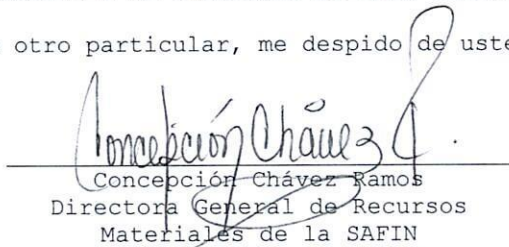 otro particular, me despido de uste
Concepción Chávez R.
Concepción Chávez Ramos
Directora General de Recursos
Materiales de la SAFIN